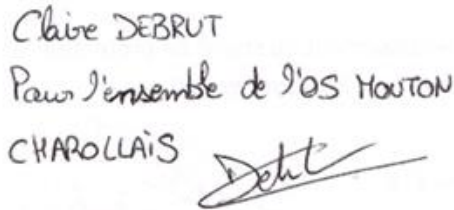 Claire DEBRUT
Pour l'ensemble de l'OS MOUTON
CHAROLLAIS
Debrut